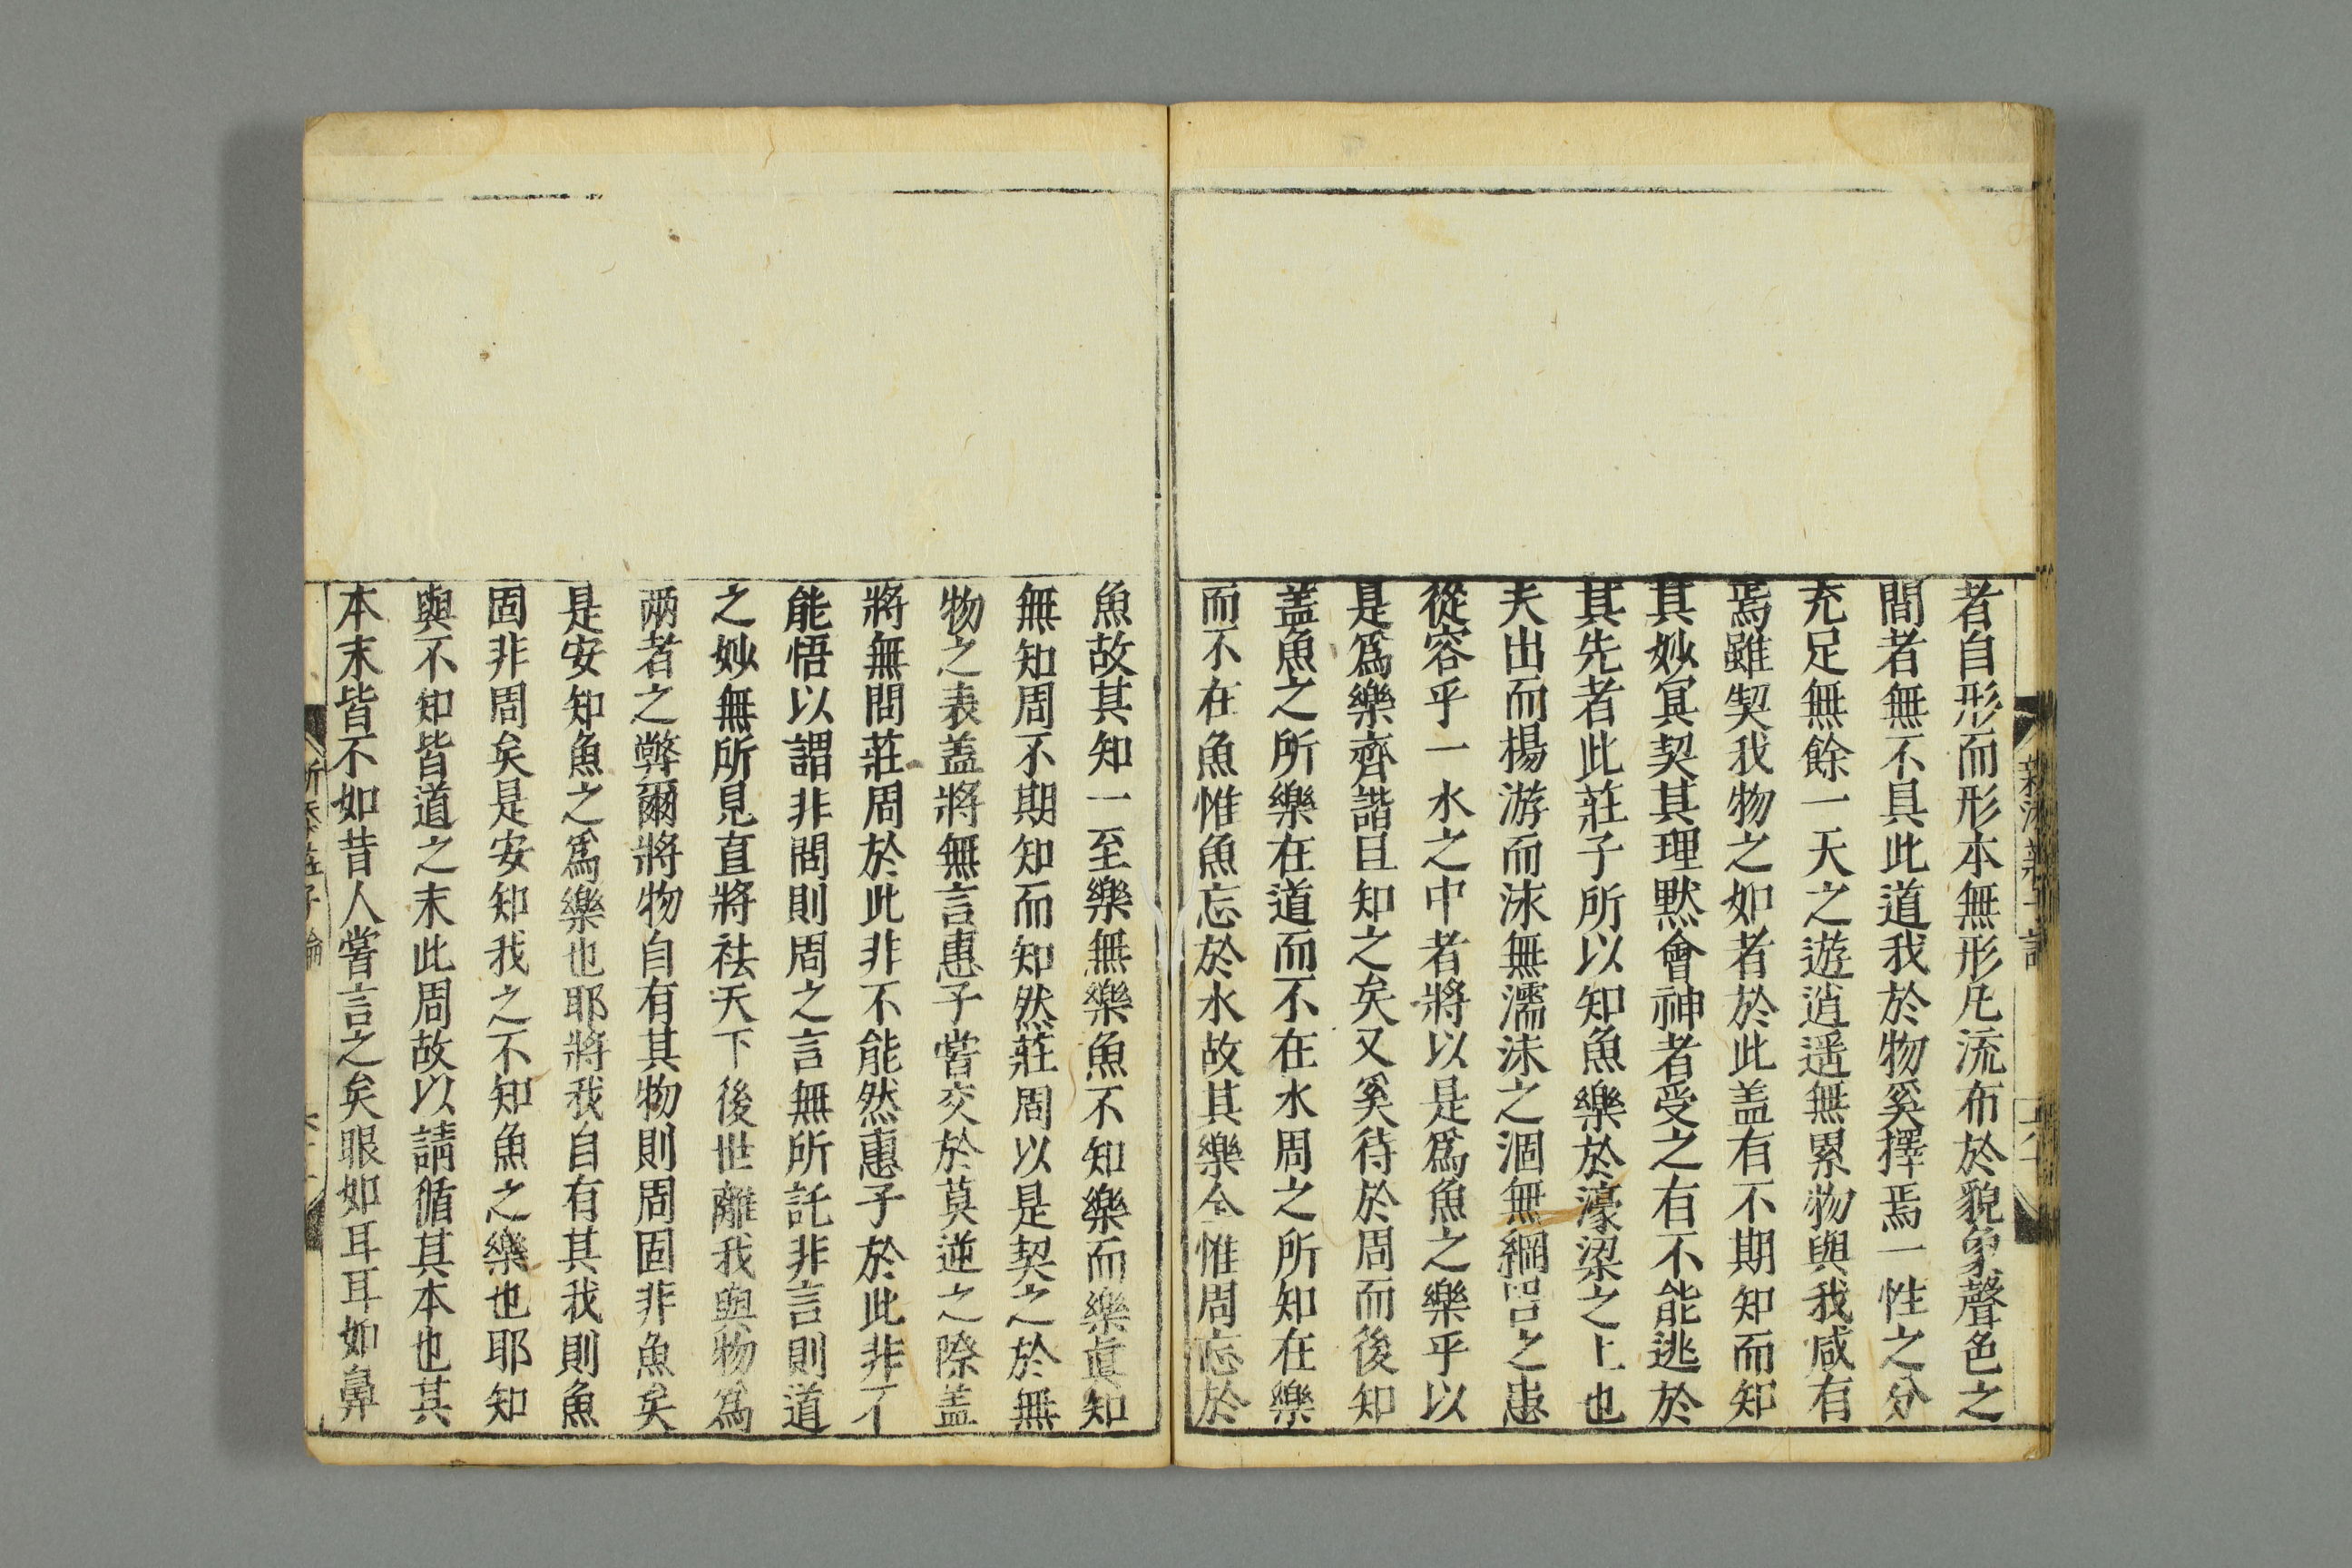 者自形而形本無形凡流布於貌象聲色之
間者無不具此道我於物奚擇焉一性之分
充足無餘一天之遊逍遥無累物與我咸有
焉雖契我物之如者於此盖有不期知而知
其妙冥契其理黙會神者受之有不能逃於
其先者此莊子所以知魚樂於濠梁之上也
夫出而揚游而沫無濡沫之涸無網罟之患
從容乎一水之中者將以是爲魚之樂乎以
是爲樂齊諧且知之矣又奚待於周而後知
盖魚之所樂在道而不在水周之所知在樂
而不在魚惟魚忘於水故其樂全惟周忘於
魚故其知一至樂無樂魚不知樂而樂真知
無知周不期知而知然莊周以是契之於無
物之表盖將無言惠子嘗交於莫逆之際盖
將無問莊周於此非不能然惠子於此非不
能悟以謂非問則周之言無所託非言則道
之妙無所見直將祛天下後世離我與物爲
兩者之弊爾將物自有其物則周固非魚矣
是安知魚之爲樂也耶將我自有其我則魚
固非周矣是安知我之不知魚之樂也耶知
與不知皆道之末此周故以請循其本也其
本末皆不如昔人嘗言之矣眼如耳耳如鼻